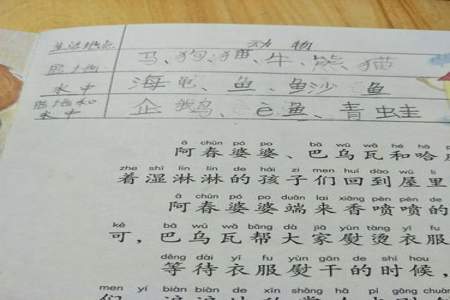 生活地点 动物
陆地 马、狗、猫、牛、熊猫
水中 海龟、鱼、鲨鱼
陆地和水中 企鹅、è鱼、青蛙
ā chūn pó po bā wū wǎ hé hā
阿春婆婆、巴乌瓦和哈
zhe shī lín lín de hái zi men huí dào wū lǐ
着湿淋淋的孩子们回到屋里
ā chūn pó po duān lai xiāng pēn pēn de
阿春婆婆端来香喷喷的
kě bā wū wǎ bāng dà jiā yù tàng yī fu
可,巴乌瓦帮大家熨烫衣服
děng dài yī fu yùn gān de shí hou
等待衣服熨干的时候,
men yí biàn biàn de xīn shǎng hà pí